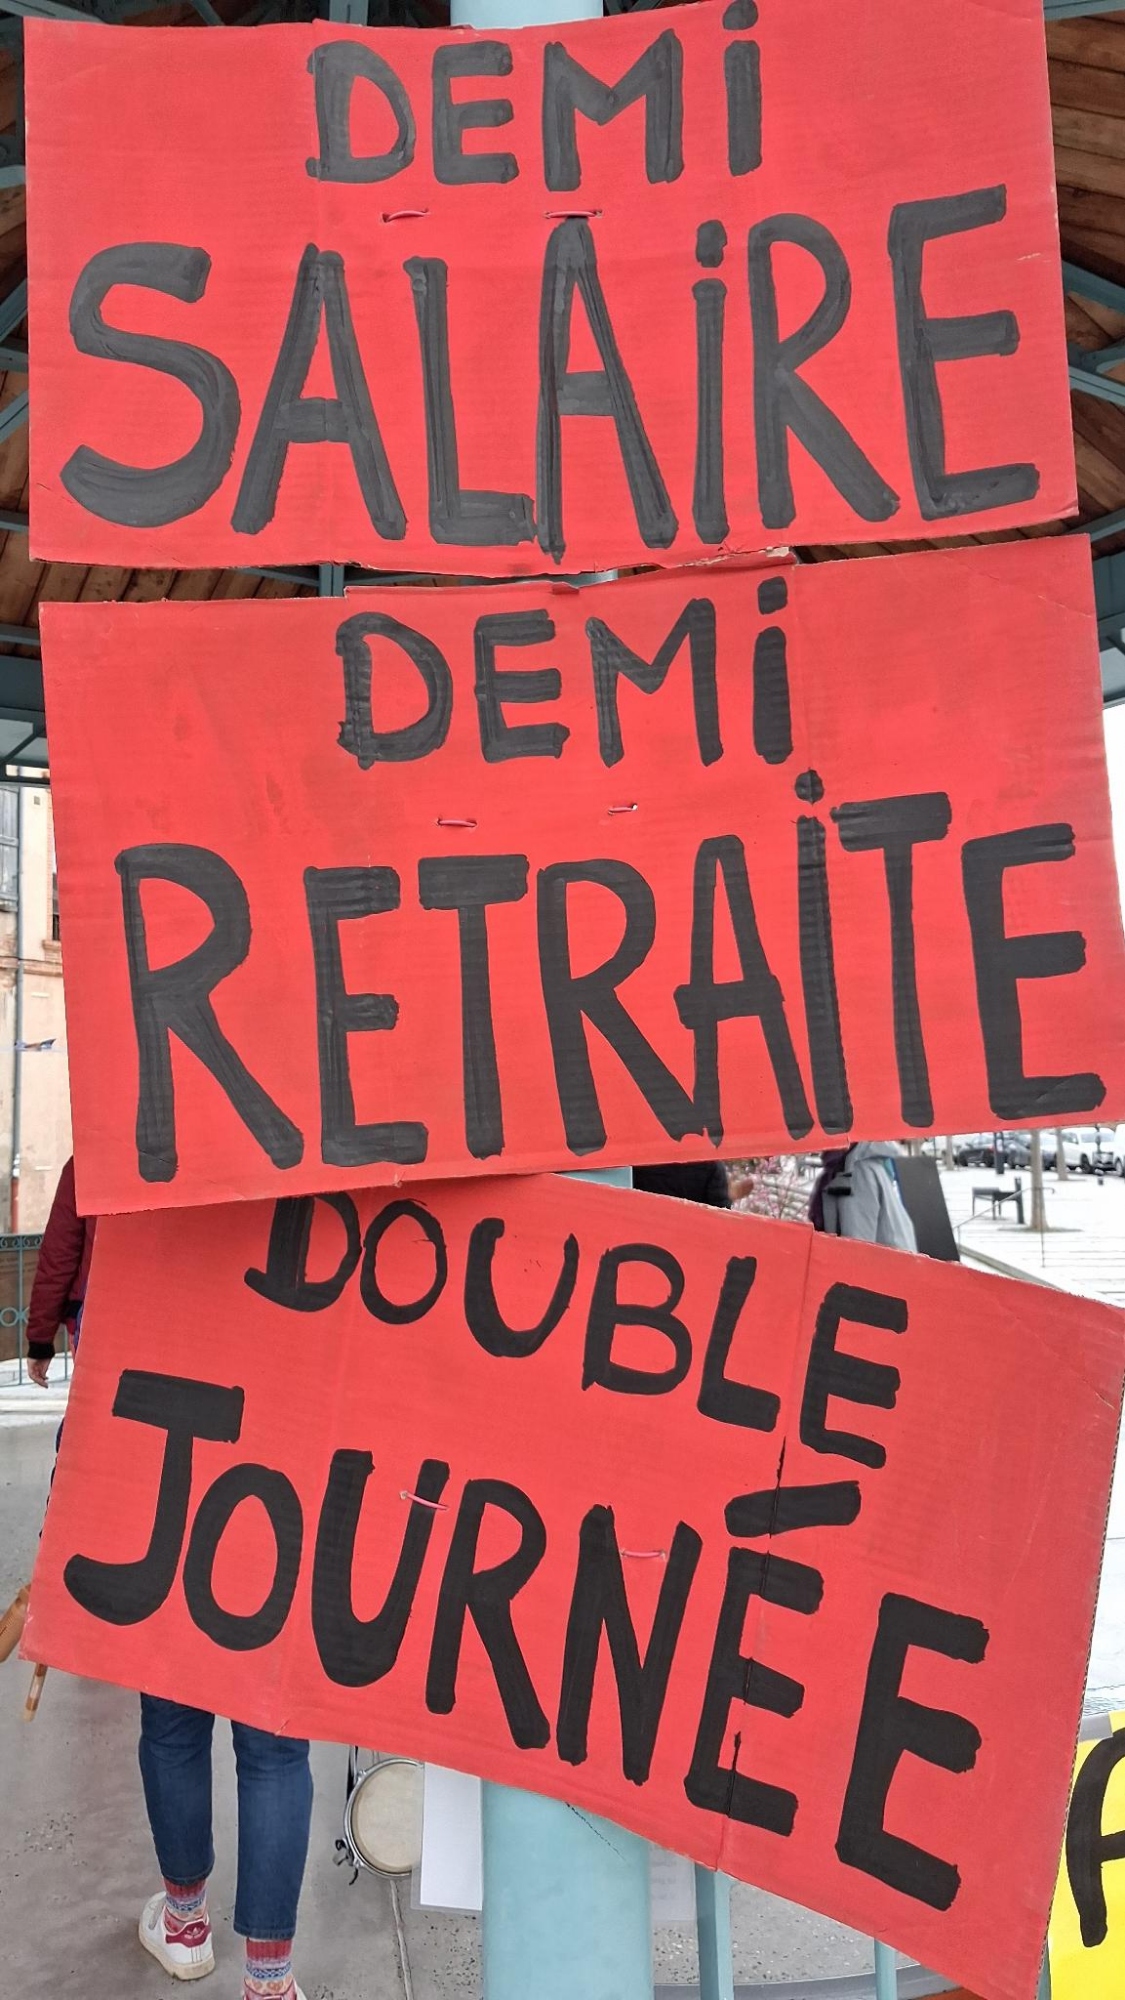 DEMi
SALAiRE
DEMi
RETRAiTE
DOUBLE
JOURNÉE